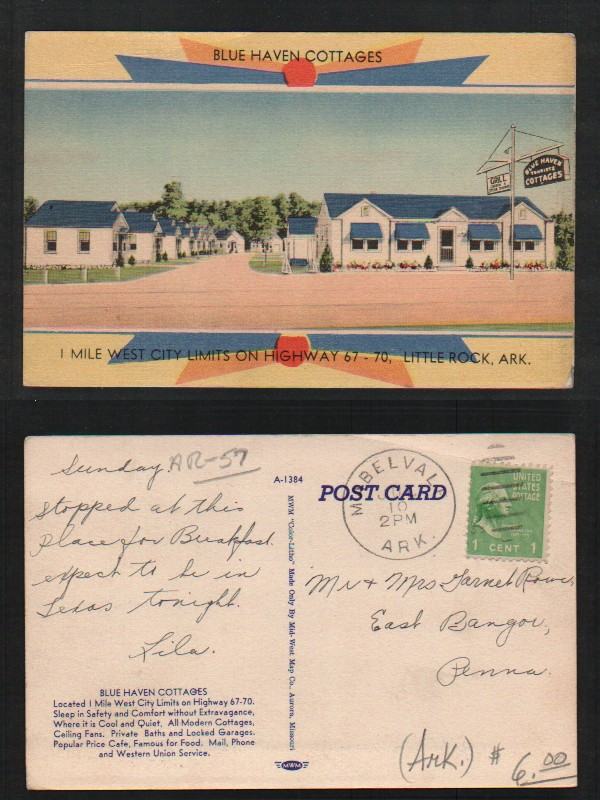 BLUE HAVEN COTTAGES
GRILL
BLUE HAVEN
TOURISTS
COTTAGES
1 MILE WEST CITY LIMITS ON HIGHWAY 67 - 70, LITTLE ROCK, ARK.
Sunday.
AR-57
stopped at this
place for Breakfast.
expect to be in
Texas tonight.
Lila.
BLUE HAVEN COTTAGES
Located 1 Mile West City Limits on Highway 67-70.
Sleep in Safety and Comfort without Extravagance,
Where it is Cool and Quiet. All Modern Cottages,
Ceiling Fans. Private Baths and Locked Garages.
Popular Price Cafe, Famous for Food. Mail, Phone
and Western Union Service.
A-1384
MWM "Color-Litho" Made Only By Mid-West Map Co., Aurora, Missouri
MWM
POST CARD
MABELVAL
10
2PM
ARK.
UNITED
STATES
POSTAGE
1 CENT 1
Mr & Mrs Garnet
East Bangor,
Penna.
(Ark.) $ 6.00